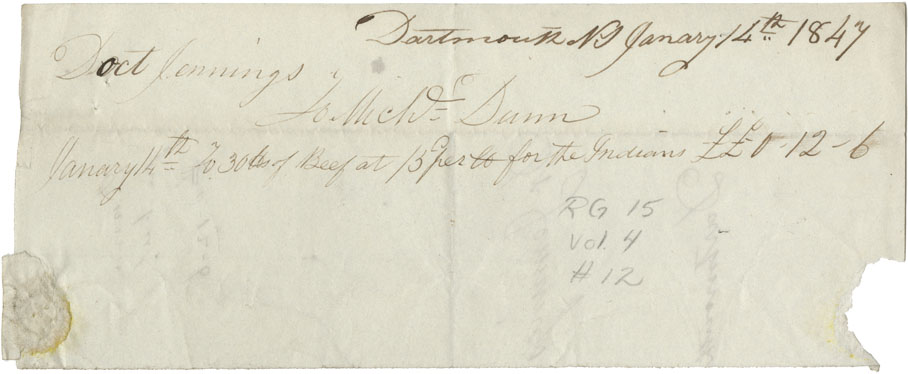 Dartmouth NS Janary 14th 1847
Doct Jennings
To Michl Dunn
Janary 14th To 30 lbs of Beef at /5d per lb for the Indians ££ 0-12-6
RG 15
Vol. 4
# 12